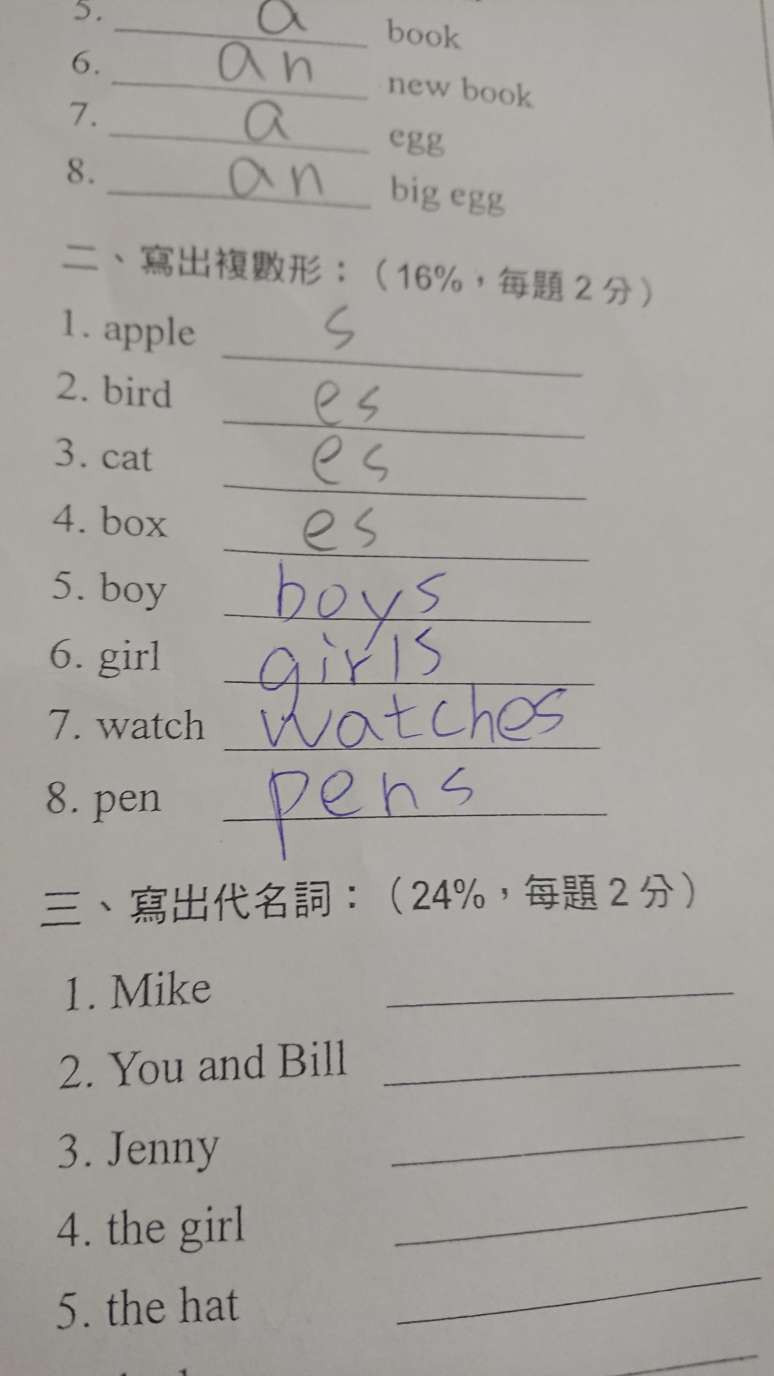 5. a book
6. an new book
7. a egg
8. an big egg
二、寫出複數形：（16%，每題2分）
1. apple s
2. bird es
3. cat es
4. box es
5. boy boys
6. girl girls
7. watch watches
8. pen pens
三、寫出代名詞：（24%，每題2分）
1. Mike
2. You and Bill
3. Jenny
4. the girl
5. the hat